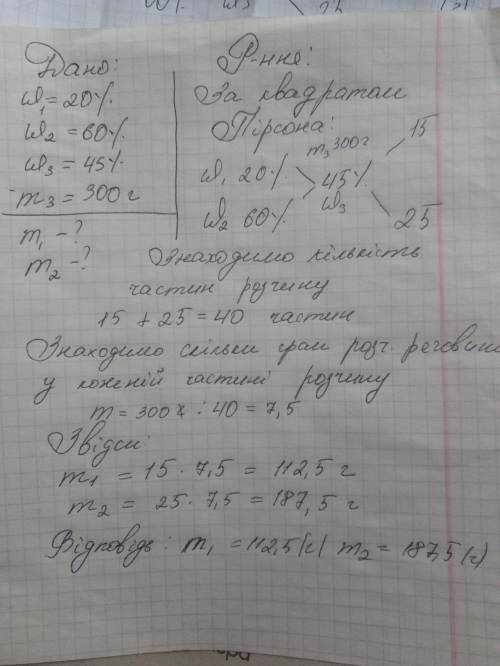 Дано:
W₁ = 20%
W₂ = 60%
W₃ = 45%
m₃ = 300 г
m₁ - ?
m₂ - ?
Р-ння:
За квадратом
Пірсона:
m₃ 300 г
15
W₁ 20%
45%
W₃
W₂ 60%
25
Знаходимо кількість
частин розчину
15 + 25 = 40 частин
Знаходимо скільки грам розч. речовини
у кожній частині розчину
m = 300 г : 40 = 7,5
Звідси:
m₁ = 15 · 7,5 = 112,5 г
m₂ = 25 · 7,5 = 187,5 г
Відповідь: m₁ = 112,5 (г) m₂ = 187,5 (г)